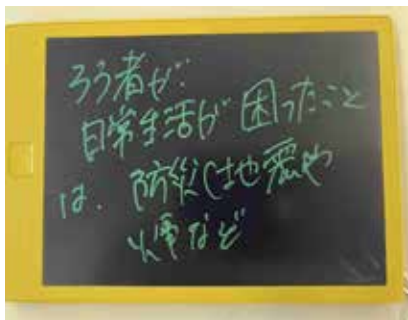 ろう者が
日常生活が 困ったこと
は、防災(地震や
火事など